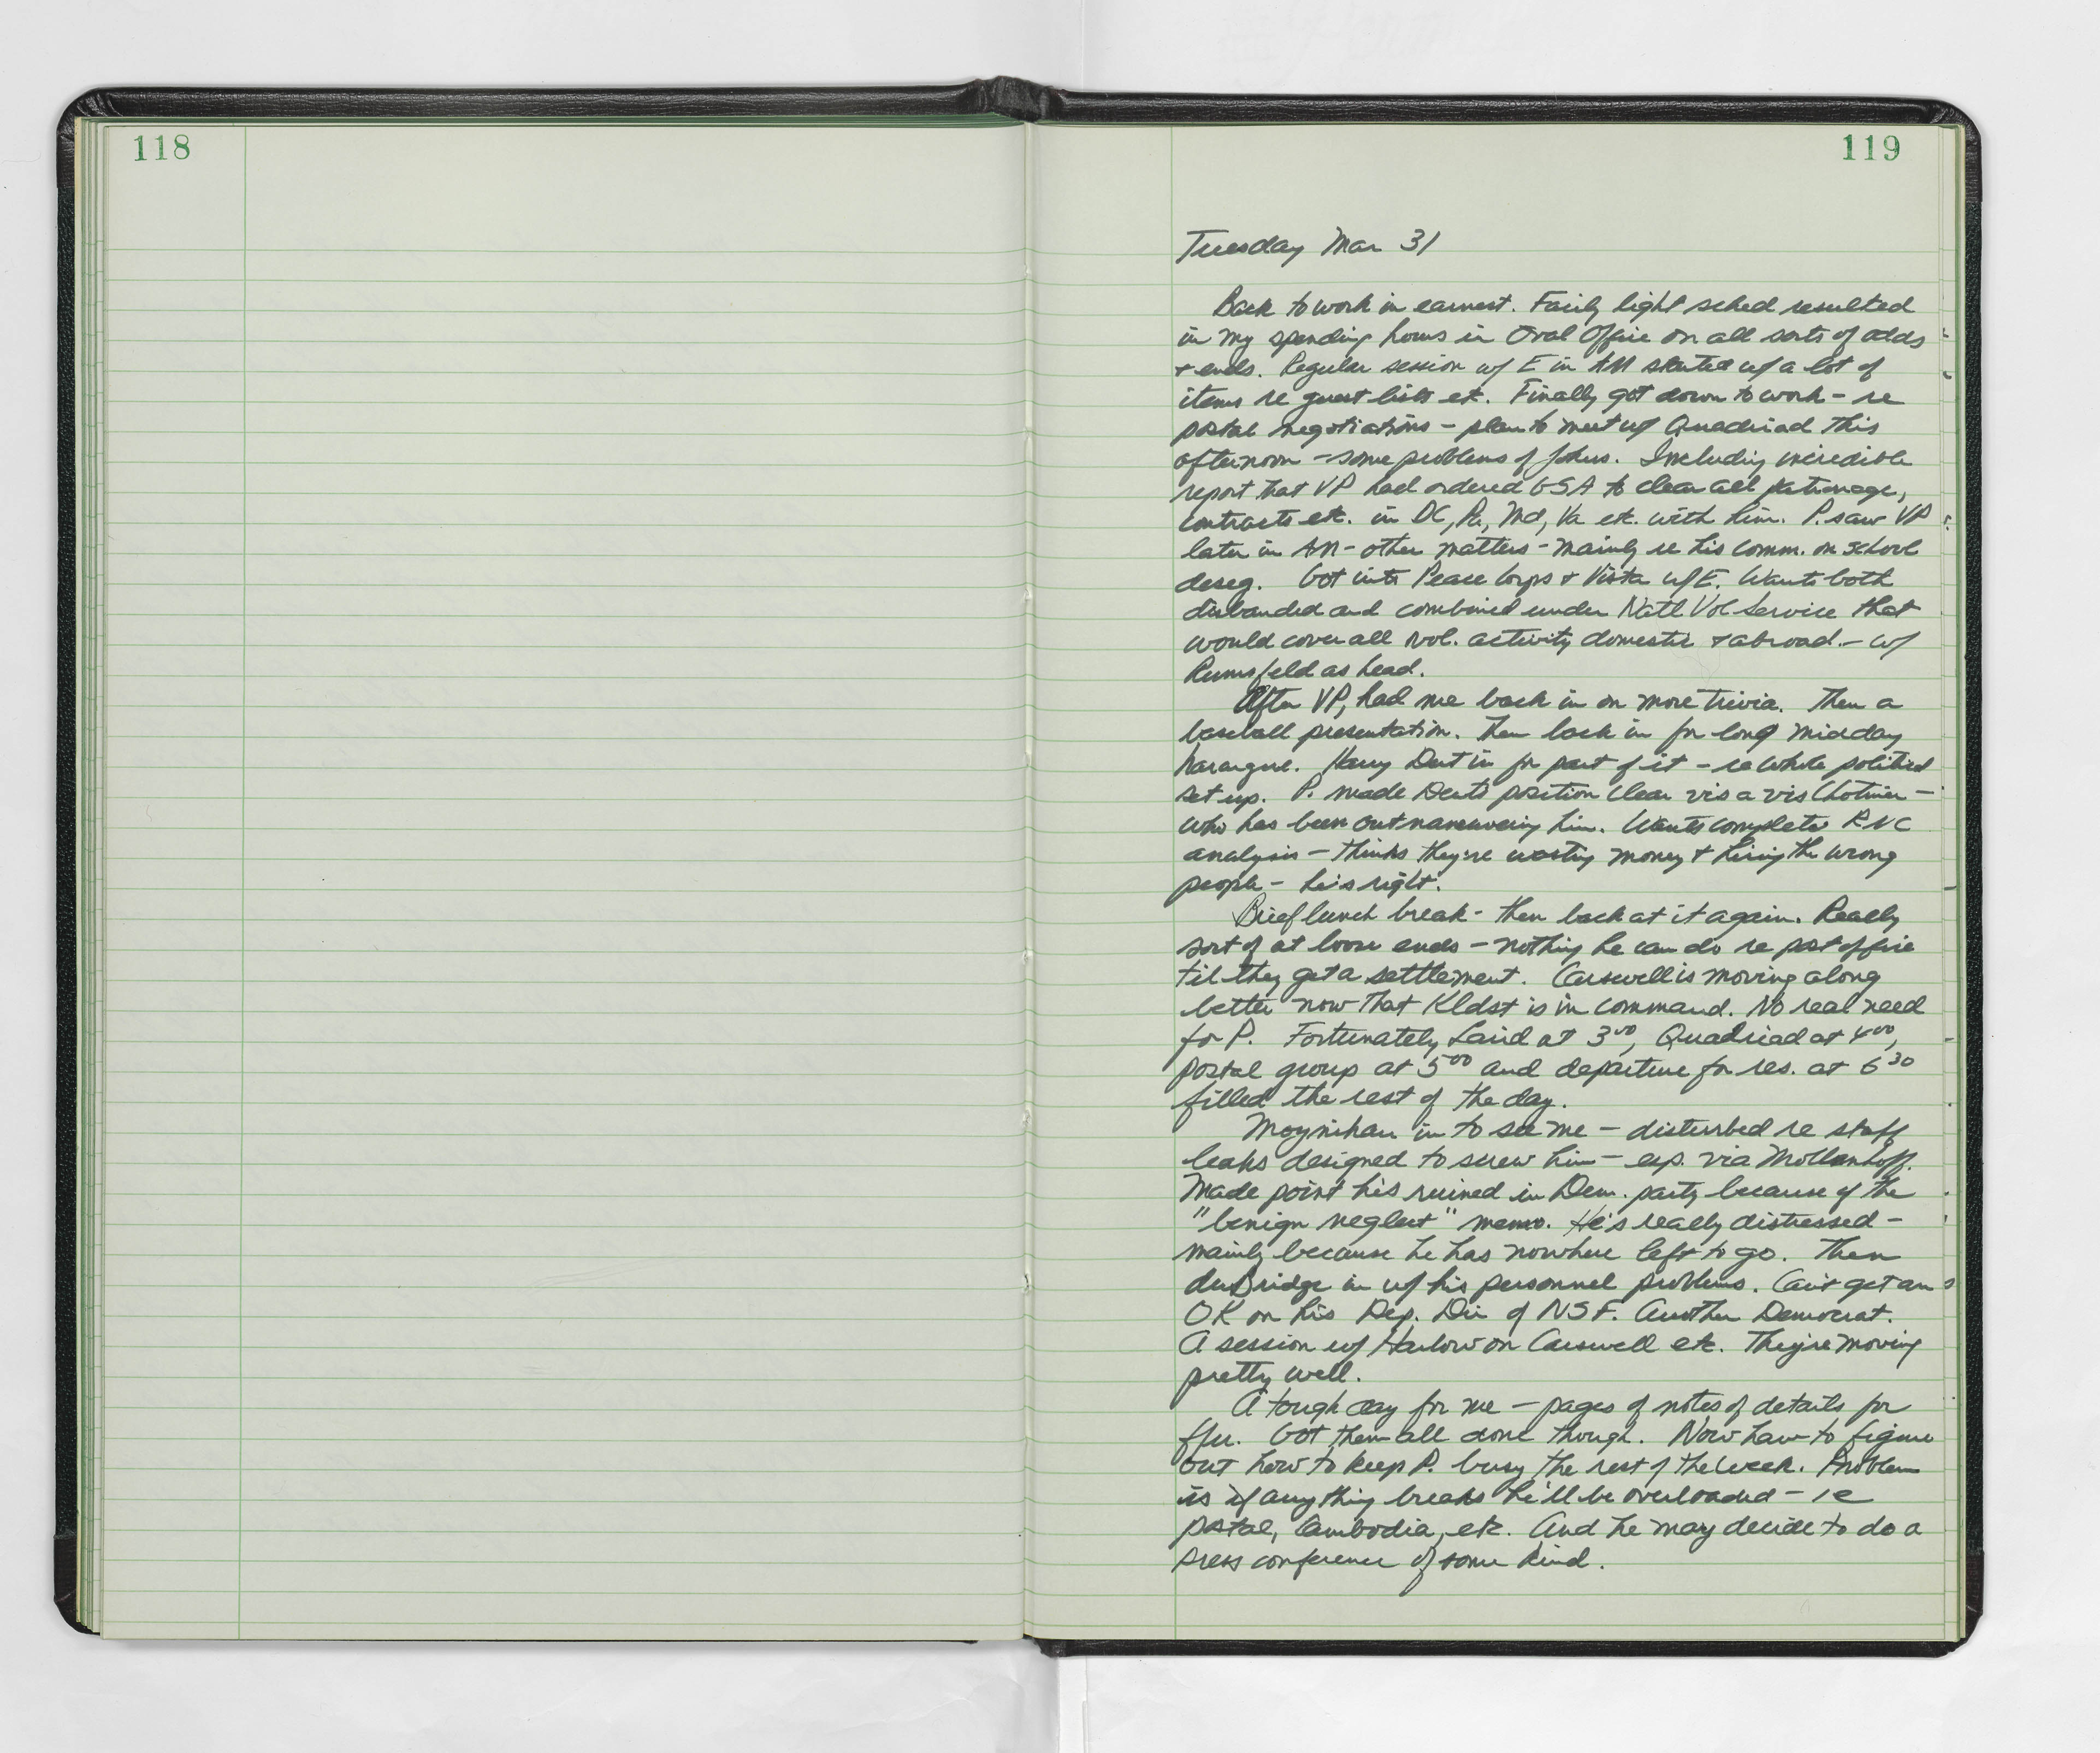 118
119
Tuesday Mar 31
Back to work in earnest. Fairly light sched resulted
in my spending hours in Oval Office on all sorts of odds
+ ends. Regular session w/ E in AM started w/ a lot of
items re guest lists etc. Finally got down to work - re
postal negotiations - plan to meet w/ Quadriad this
afternoon - some problems of
Including incredible
report that VP had ordered GSA to clear all patronage,
contracts etc. in DC, Pa, Md, Va etc. with him. P. saw VP
later in AM - other matters - mainly re his comm. on school
deseg. Got into Peace Corps + Vista w/ E. Wants both
disbanded and combined under Natl Vol Service that
would cover all vol. activity domestic + abroad - w/
Rumsfeld as head.
After VP, had me back in on more trivia. Then a
baseball presentation. Then back in for long midday
harangue. Harry Dent in for part of it - re whole political
set up. P. made Dents position clear vis a vis Chotiner -
who has been outmaneuvering him. Wants complete RNC
analysis - thinks they're wasting money + hiring the wrong
people - he's right.
Brief lunch break - then back at it again. Really
sort of at loose ends - nothing he can do re post office
til they get a settlement. Carswell is moving along
better now that Kldst is in command. No real need
for P. Fortunately Laird at 3⁰⁰, Quadriad at 4⁰⁰,
postal group at 5⁰⁰ and departure for res. at 6³⁰
filled the rest of the day.
Moynihan in to see me - disturbed re staff
leaks designed to screw him - esp. via Mollenhoff.
Made point he's ruined in Dem. party because of the
"benign neglect" memo. He's really distressed -
mainly because he has nowhere left to go. Then
duBridge in w/ his personnel problems. Can't get an
OK on his Dep. Dir of NSF. Another Democrat.
A session w/ Harlow on Carswell etc. They're moving
pretty well.
A tough day for me - pages of notes of details for
ffu. Got them all done though. Now have to figure
out how to keep P. busy the rest of the week. Problem
is if anything breaks he'll be overloaded - ie
postal, Cambodia, etc. And he may decide to do a
press conference of some kind.